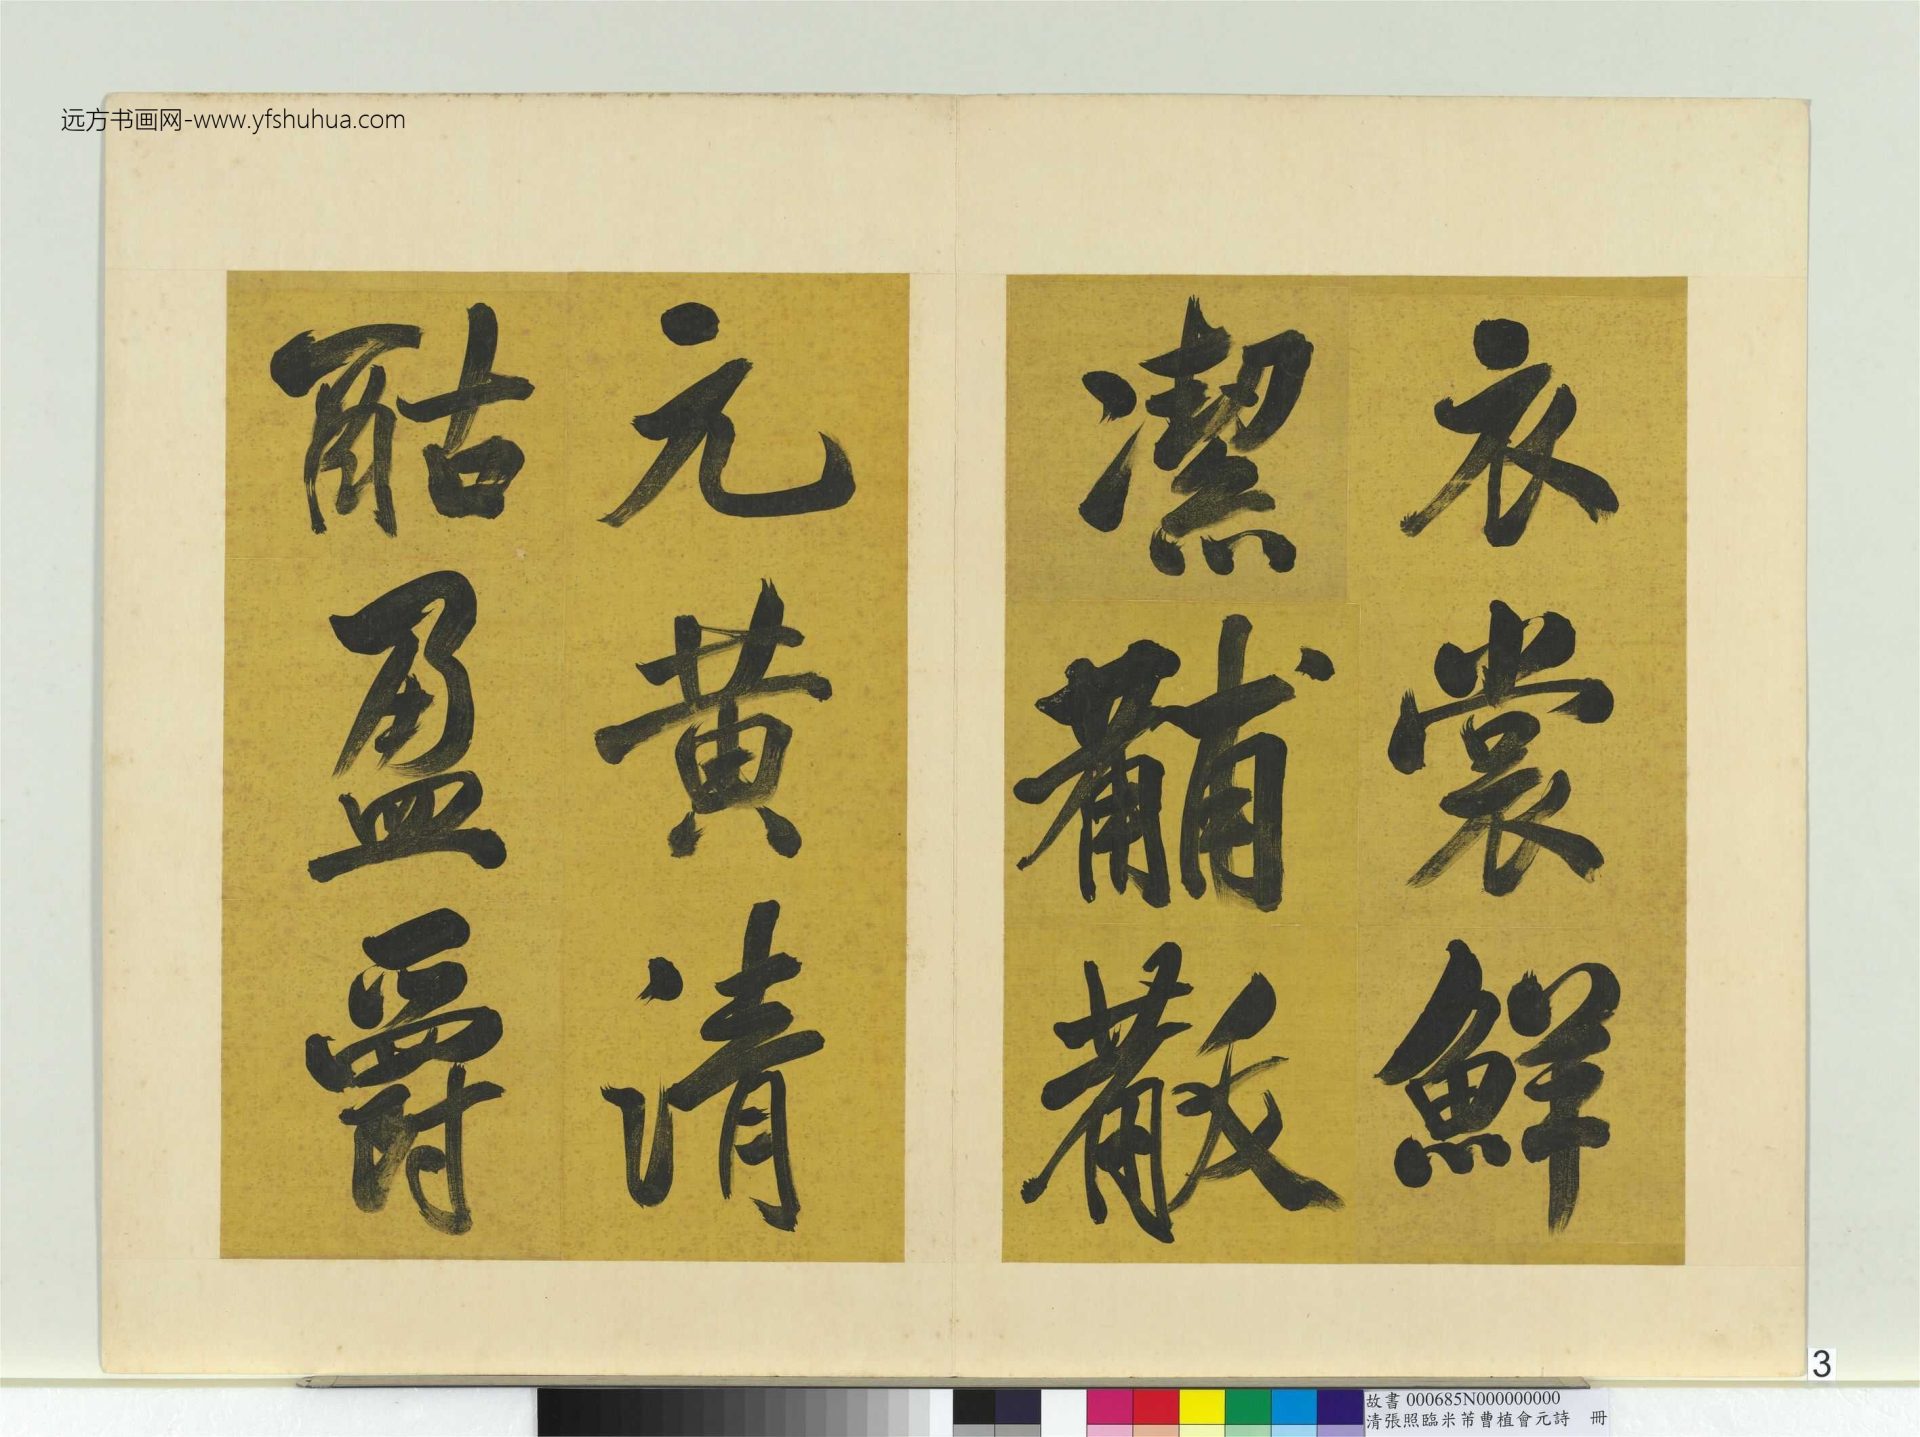 远方书画网-www.yfshuhua.com
衣裳鮮
潔黼黻
元黄清
酤盈爵
3
故書 000685N000000000
清張照臨米芾曹植會元詩 冊